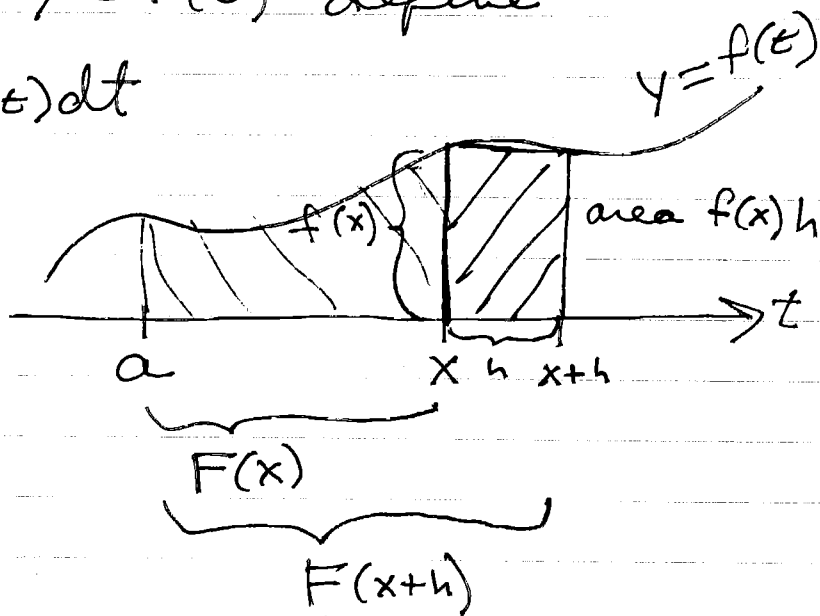 define
t)dt
y=f(t)
f(x)
area f(x)h
t
a x h x+h
F(x)
F(x+h)